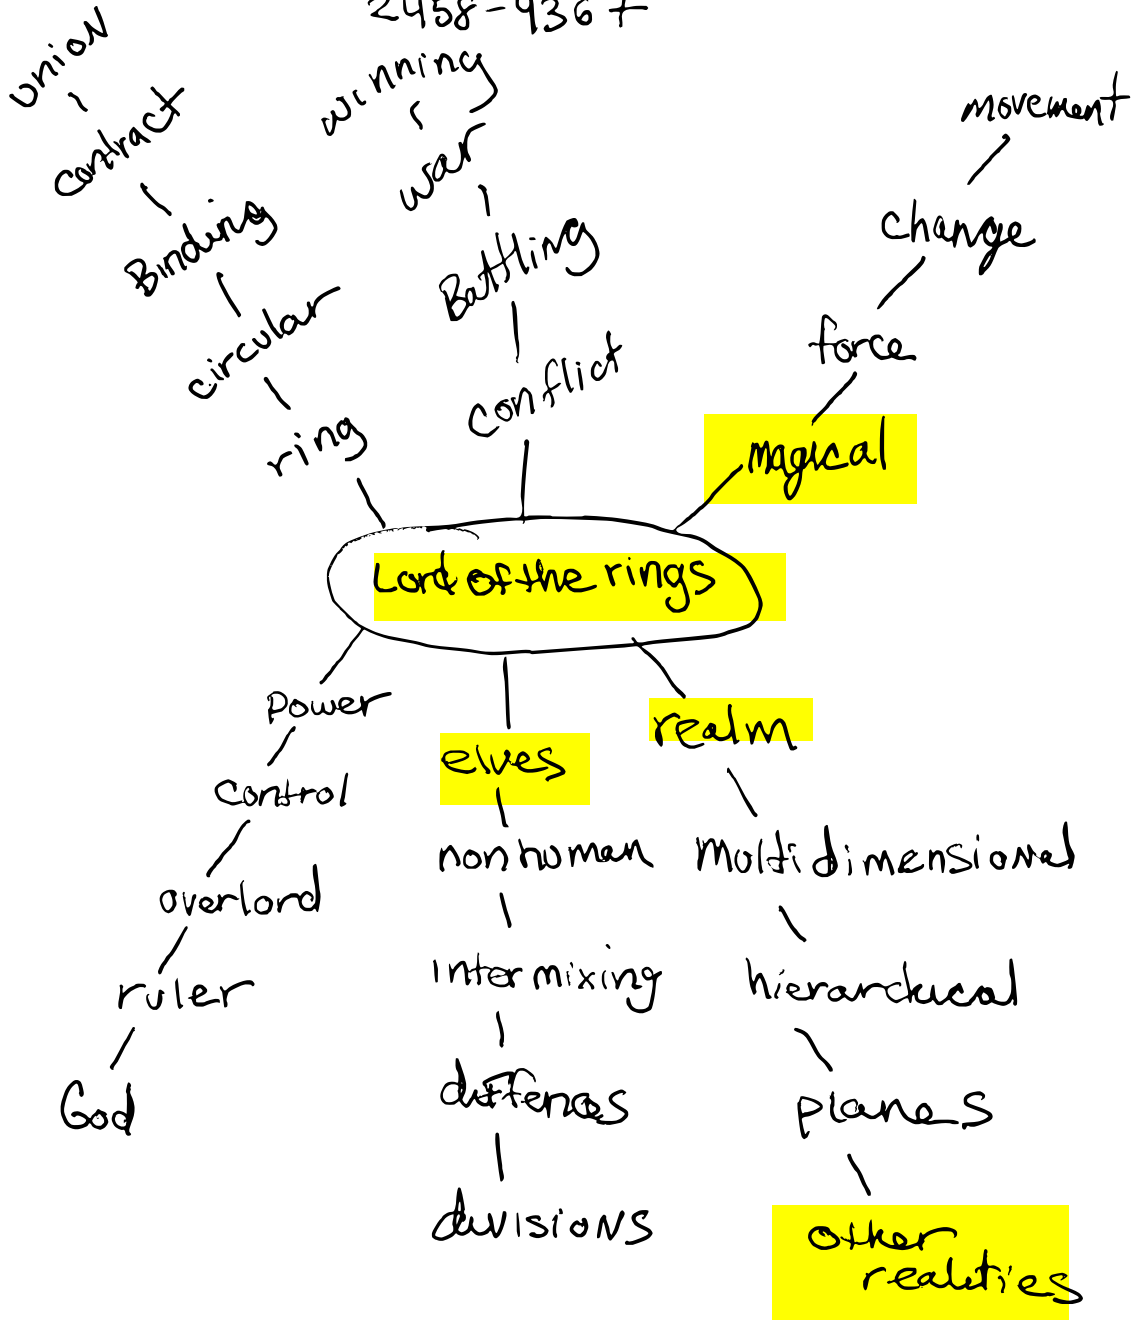 2458-9367
union
contract
Binding
circular
ring
winning
war
Battling
conflict
movement
change
force
magical
Lord of the rings
Power
control
overlord
ruler
God
elves
nonhuman
intermixing
diffences
divisions
realm
multidimensional
hierarchical
planes
other
realities